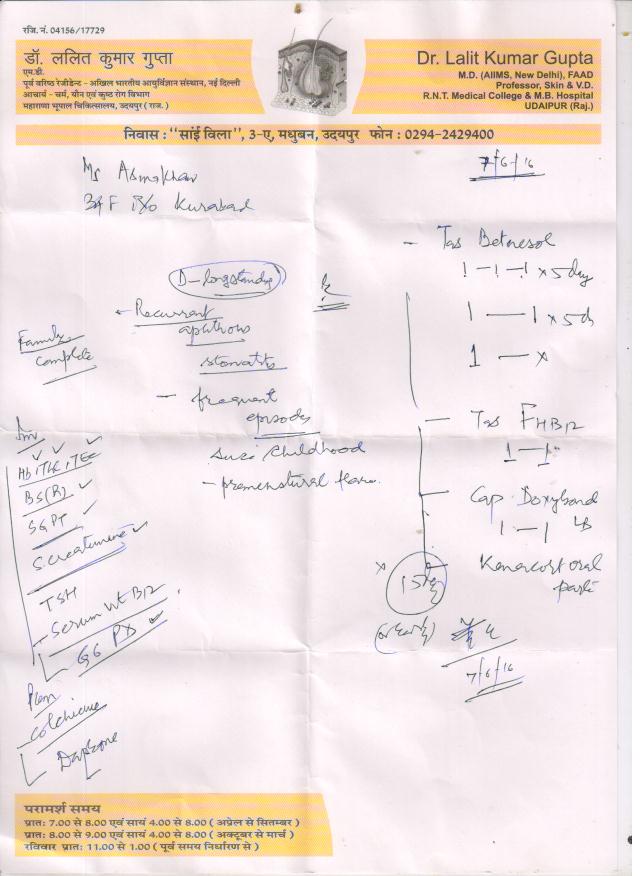 रजि. नं. 04156/17729
डॉ. ललित कुमार गुप्ता
एम.डी.
पूर्व वरिष्ठ रेजीडेन्ट - अखिल भारतीय आयुर्विज्ञान संस्थान, नई दिल्ली
आचार्य - चर्म, यौन एवं कुष्ठ रोग विभाग
महाराणा भूपाल चिकित्सालय, उदयपुर ( राज. )
Dr. Lalit Kumar Gupta
M.D. (AIIMS, New Delhi), FAAD
Professor, Skin & V.D.
R.N.T. Medical College & M.B. Hospital
UDAIPUR (Raj.)
निवास : "सांई विला", 3-ए, मधुबन, उदयपुर फोन : 0294-2429400
7/6/16
Ms Asma khan
F Kurabad
D-longstanding
- Recurrent
aphthous
stomatitis
- frequent
episodes
since childhood
- premenstural flare.
Family
complete
Inv
Hb, TLC, TEC
BS(R)
SGPT
S. creatinine
TSH
- Serum Vit B12
G6 PD
Plan
Colchicine
Dapsone
- Tas Betnesol
1-1-1 x 5 day
1 — 1 x 5d
1 — x
- Tas FHB12
1-1
- Cap Doxyband
1 - 1 LB
- Kenacort oral
paste
7/6/16
परामर्श समय
प्रातः 7.00 से 8.00 एवं सायं 4.00 से 8.00 ( अप्रेल से सितम्बर )
प्रातः 8.00 से 9.00 एवं सायं 4.00 से 8.00 ( अक्टूबर से मार्च )
रविवार प्रातः 11.00 से 1.00 ( पूर्व समय निर्धारण से )